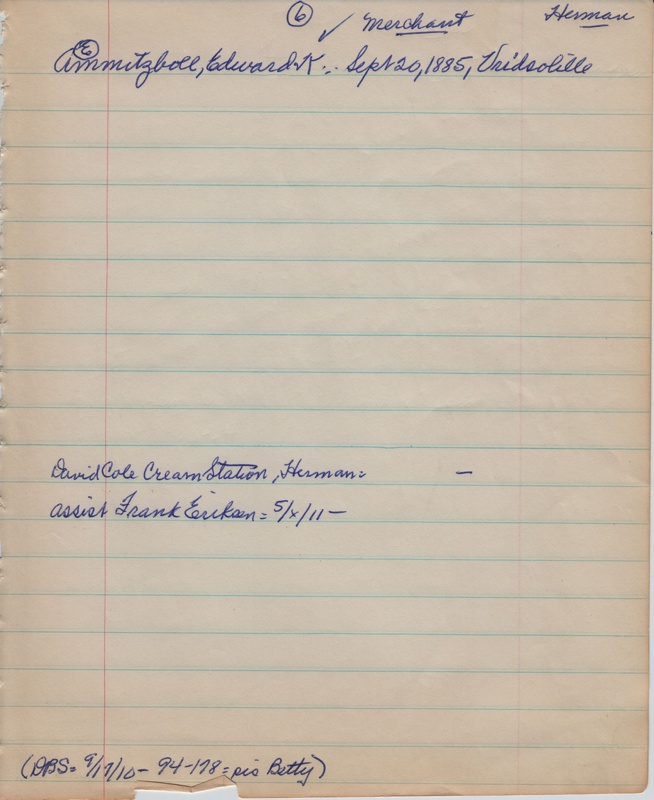 6 ✓ Merchant Herman
E
Ammitzboll, Edward K.: Sept 20, 1885, Vridsolille
David Cole Cream Station, Herman = —
assist Frank Eriksen = 5/x/11 —
(DBS = 9/17/10 — 94-178 = sis Betty)